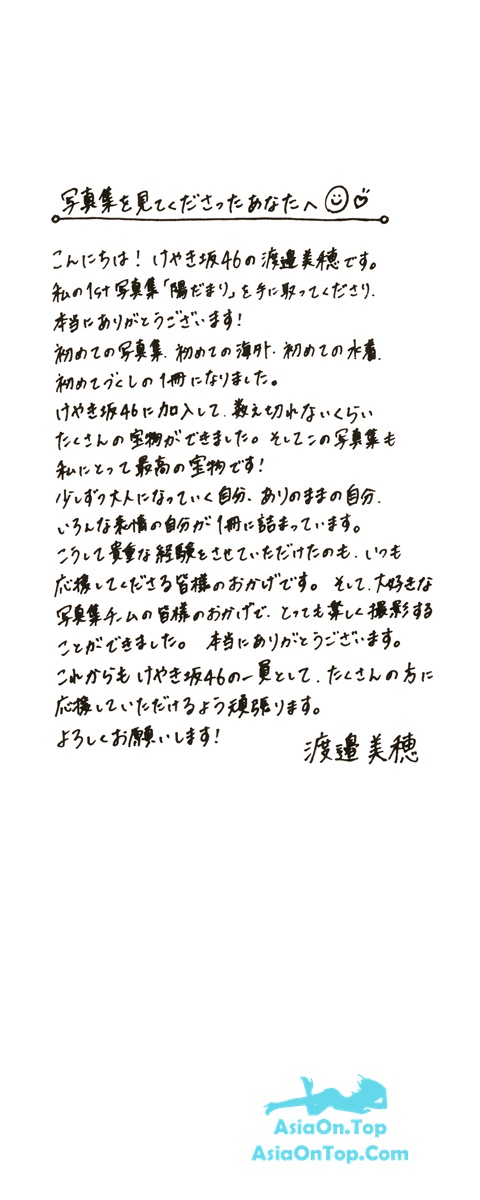 写真集を見てくださったあなたへ
こんにちは！けやき坂46の渡邉美穂です。
私の1st写真集「陽だまり」を手に取ってくださり、
本当にありがとうございます！
初めての写真集、初めての海外、初めての水着、
初めてづくしの1冊になりました。
けやき坂46に加入して、数え切れないくらい
たくさんの宝物ができました。そしてこの写真集も
私にとって最高の宝物です！
少しずつ大人になっていく自分、ありのままの自分、
いろんな表情の自分が1冊に詰まっています。
こうして貴重な経験をさせていただけたのも、いつも
応援してくださる皆様のおかげです。そして、大好きな
写真集チームの皆様のおかげで、とっても楽しく撮影する
ことができました。本当にありがとうございます。
これからもけやき坂46の一員として、たくさんの方に
応援していただけるよう頑張ります。
よろしくお願いします！
渡邉美穂
AsiaOn.Top
AsiaOnTop.Com